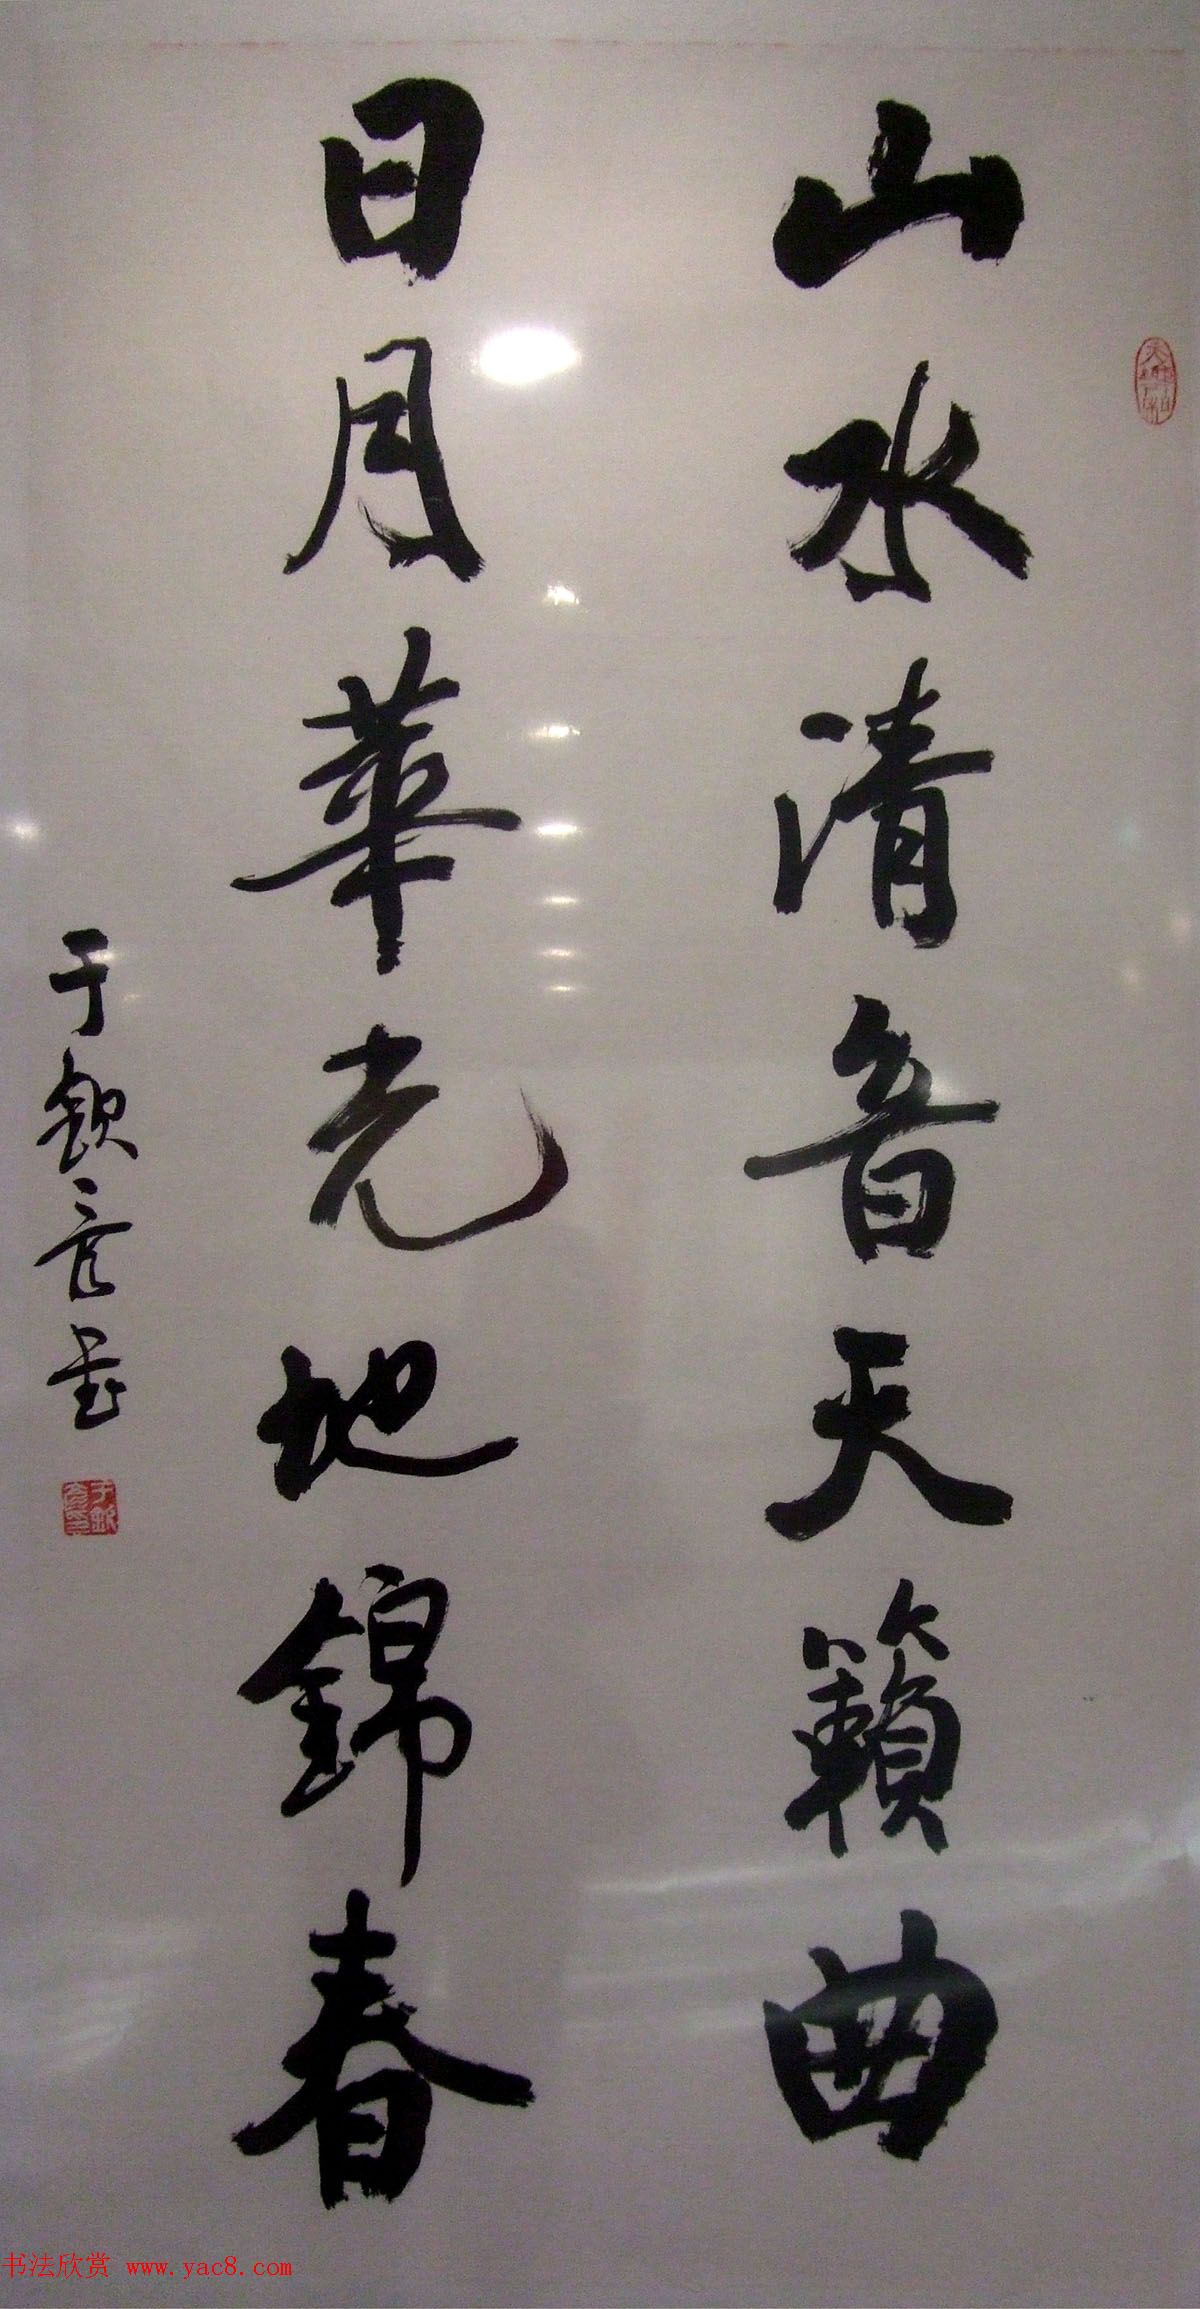 山水清音天籟曲
日月華光地錦春
于欽彦书
书法欣赏 www.yac8.com